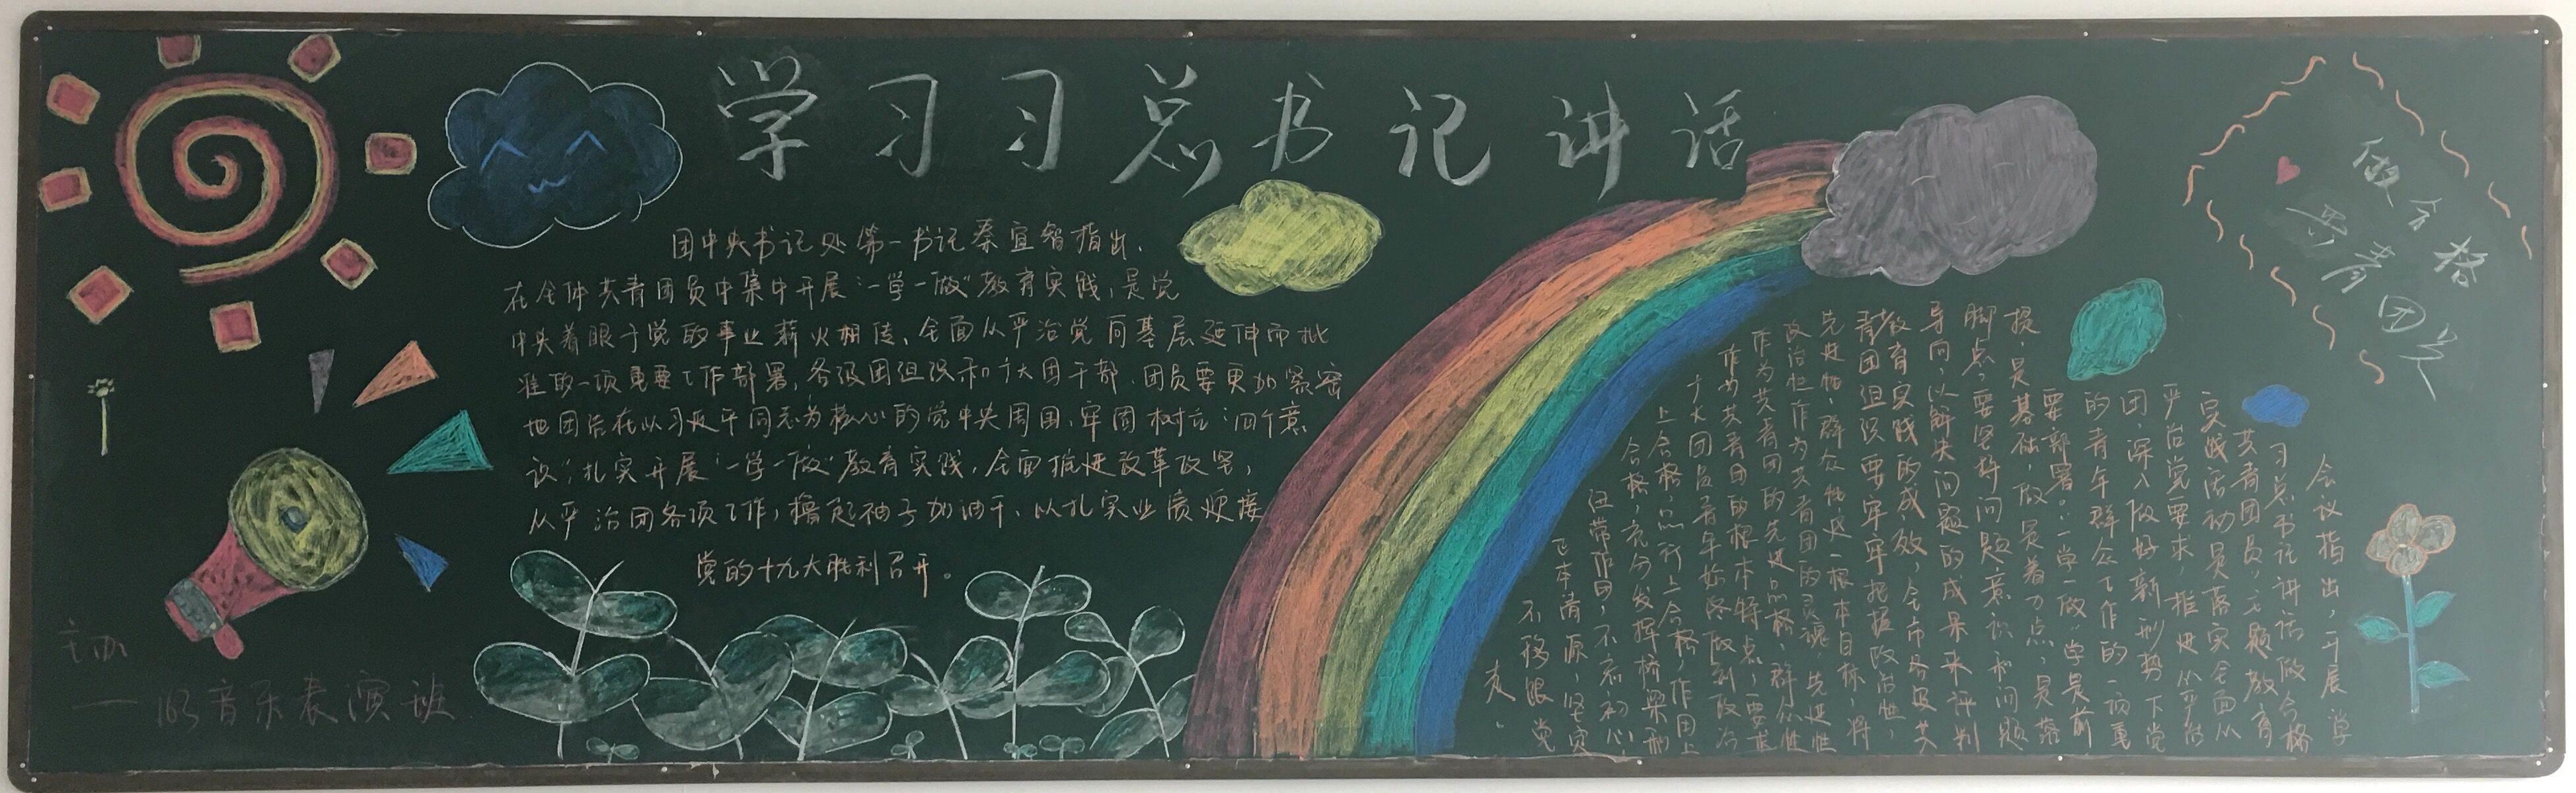 学习习总书记讲话
团中央书记处第一书记秦宜智指出，
在全体共青团员中集中开展“一学一做”教育实践，是党
中央着眼于党的事业薪火相传、全面从严治党向基层延伸而批
准的一项重要工作部署，各级团组织和广大团干部、团员要更加紧密
地团结在以习近平同志为核心的党中央周围，牢固树立“四个意
识”，扎实开展“一学一做”教育实践，全面推进改革攻坚，
从严治团各项工作，撸起袖子加油干，以扎实业绩迎接
党的十九大胜利召开。
做合格
共青团员
会议指出，开展“学
习总书记讲话做合格
共青团员”主题教育
实践活动是落实全面从
严治党要求，推进从严治
团，深入做好新形势下党
的青年群众工作的一项重
要部署。“一学一做”学是前
提，是基础，做是着力点，是落
脚点，要坚持问题意识和问题
导向，以解决问题的成果来评判
教育实践的成效，全市各级共
青团组织要牢牢把握政治性、
先进性、群众性这一根本目标，将
政治性作为共青团的灵魂，先进性
作为共青团的先进品格，群众性
作为共青团的根本特点，要求
广大团员青年始终做到政治
上合格，品行上合格，作用上
合格，充分发挥桥梁和
纽带作用，不忘初心，
正本清源，坚定
不移跟党
走。
主办
——163音乐表演班